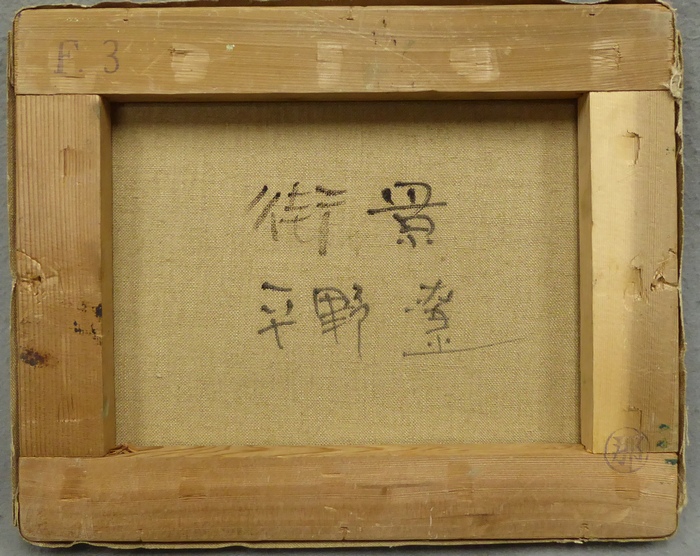 F 3
街景
平野 遼